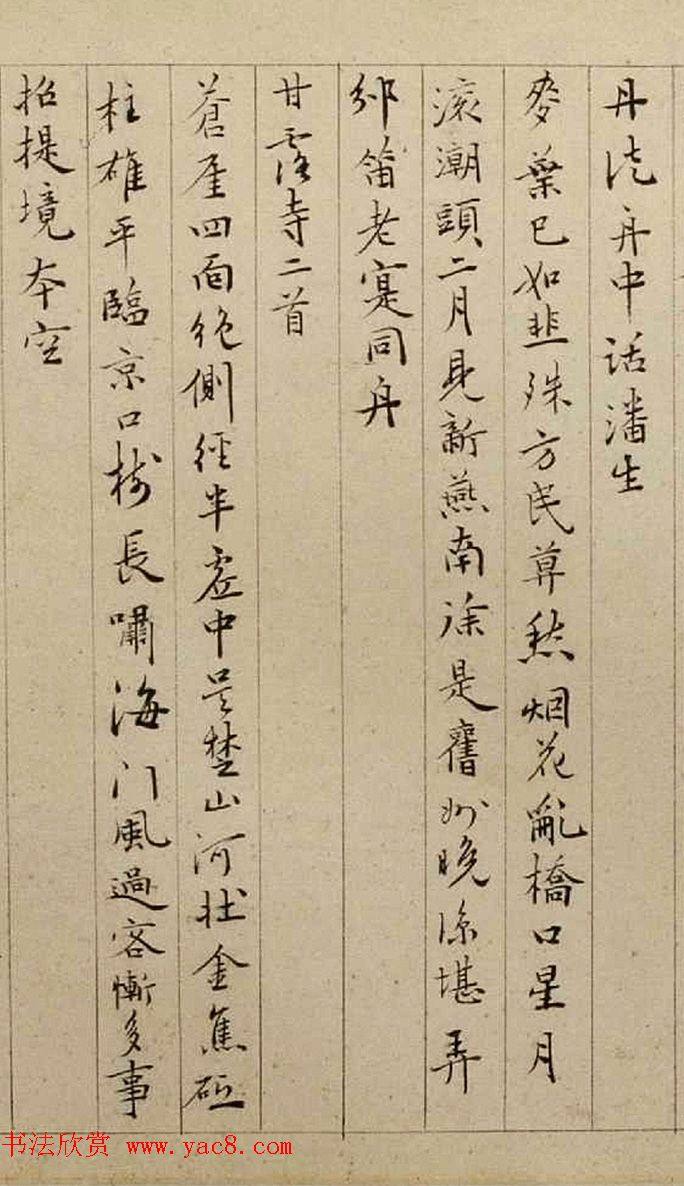 丹徒舟中話潘生
麥葉已如韭殊方民算愁烟花亂橋口星月
滚潮頭二月見新燕南徐是舊州晚涼堪弄
笛老寔同舟
甘露寺二首
蒼厓四面絶側徑半虛中吴楚山河壯金焦砥
柱雄平臨京口樹長嘯海門風過客慚多事
招提境本空
书法欣赏 www.yac8.com